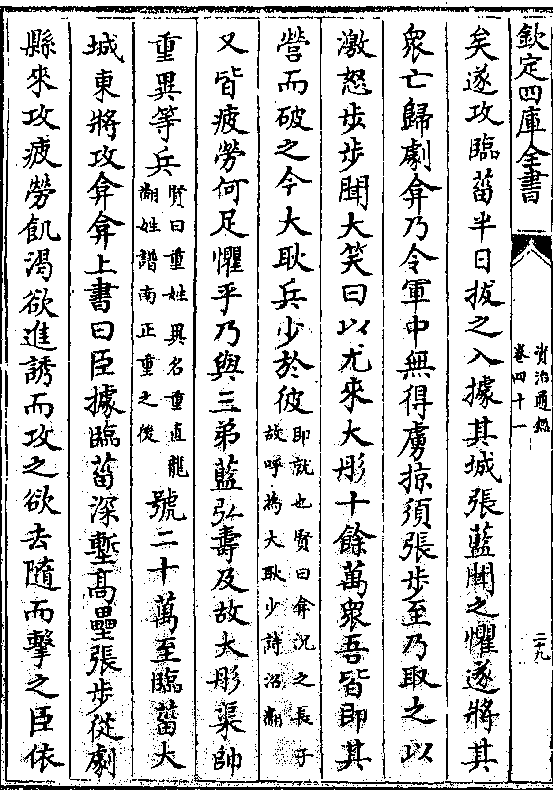 欽定四庫全書
資治通鑑
卷四十一
二十九
矣遂攻臨菑半日拔之入據其城張藍聞之懼遂將其
衆亡歸劇弇乃令軍中無得虜掠須張步至乃取之以
激怒步步聞大笑曰以尤來大彤十餘萬衆吾皆即其
營而破之今大耿兵少於彼即就也賢曰弇況之長子故呼為大耿少詩沼翻
又皆疲勞何足懼乎乃與三弟藍弘壽及故大彤渠帥
重異等兵賢曰重姓異名重直龍翻姓譜南正重之後號二十萬至臨菑大
城東將攻弇弇上書曰臣據臨菑深塹高壘張步從劇
縣來攻疲勞飢渴欲進誘而攻之欲去隨而擊之臣依